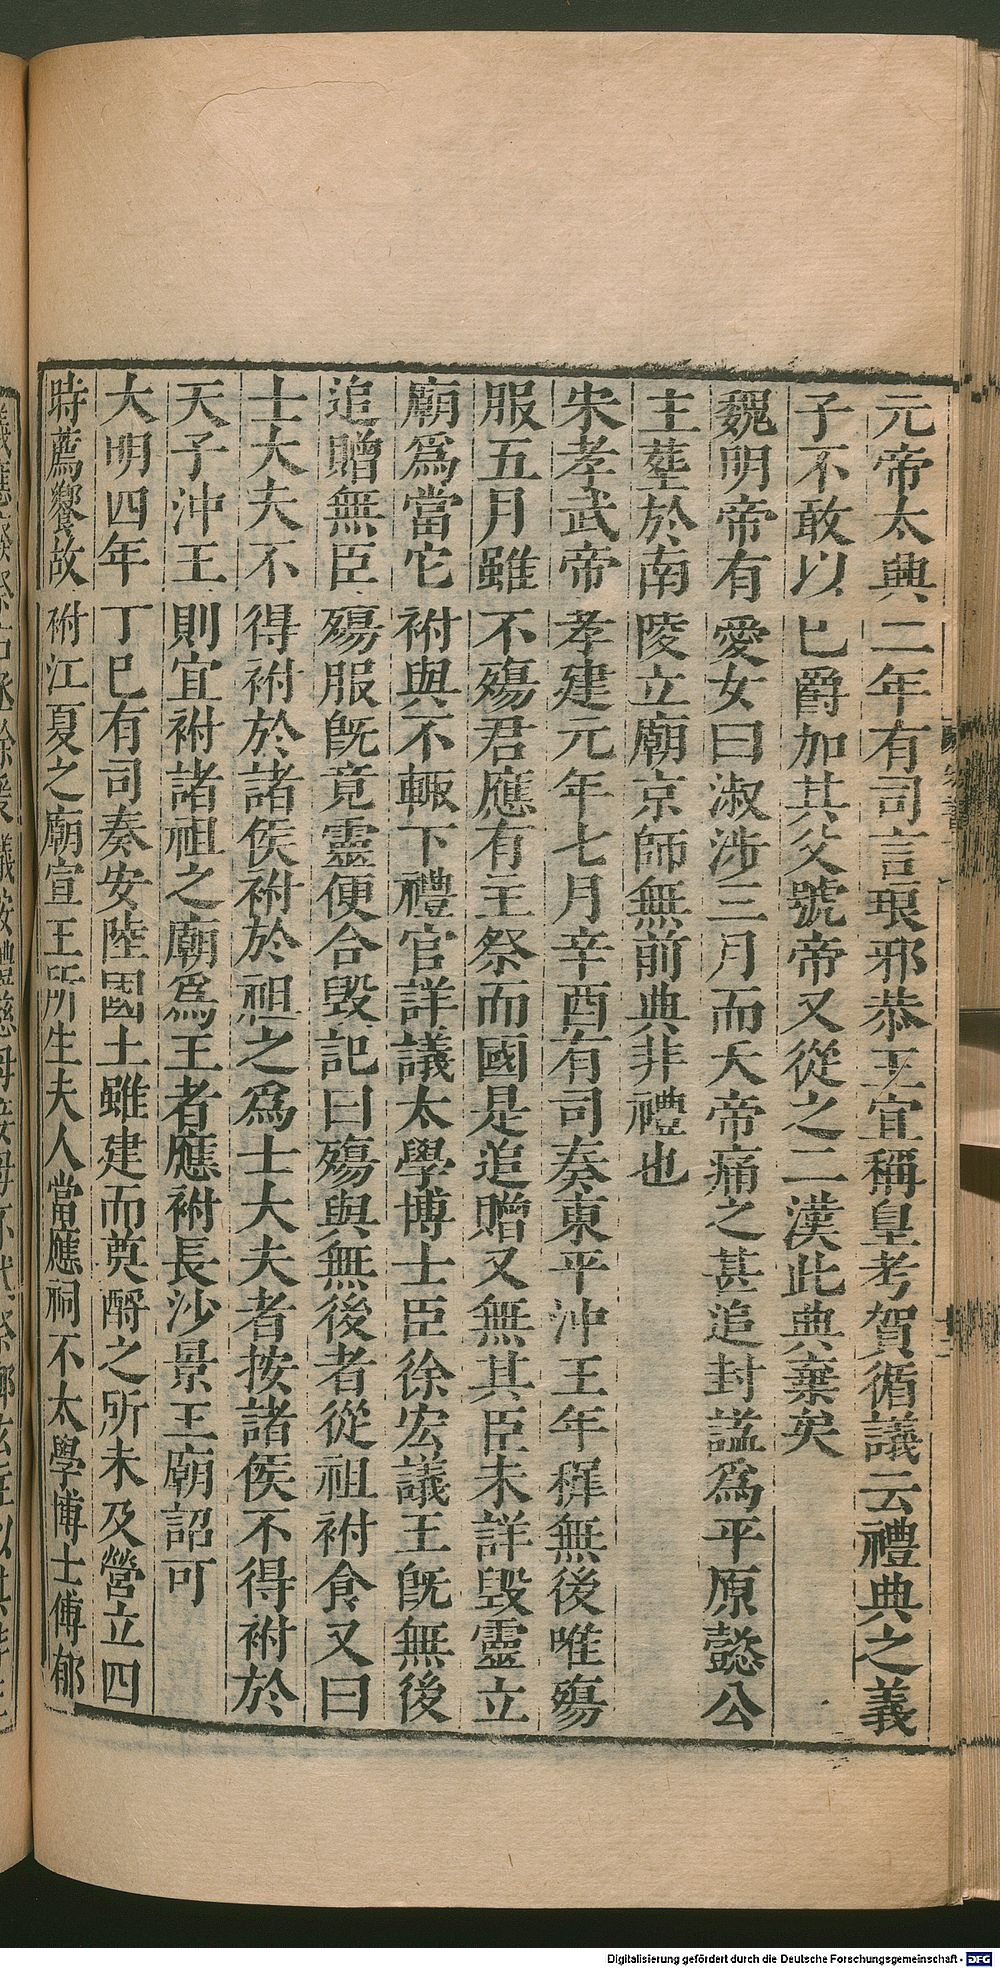 元帝太興二年有司言琅邪恭王宜稱皇考賀循議云禮典之義
子不敢以已爵加其父號帝又從之二漢此典棄矣
魏明帝有愛女曰淑涉三月而夭帝痛之甚追封謚爲平原懿公
主塟於南陵立廟京師無前典非禮也
宋孝武帝孝建元年七月辛酉有司奏東平沖王年穉無後唯殤
服五月雖不殤君應有主祭而國是追贈又無其臣未詳毀靈立
廟爲當它祔與不輙下禮官詳議太學博士臣徐宏議王旣無後
追贈無臣殤服旣竟靈便合毀記曰殤與無後者從祖祔食又曰
士大夫不得祔於諸侯祔於祖之爲士大夫者按諸侯不得祔於
天子沖王則宜祔諸祖之廟爲王者應祔長沙景王廟詔可
大明四年丁巳有司奏安陸國土雖建而奠酹之所未及營立四
時薦饗故祔江夏之廟宣王所生夫人當應祠不太學博士傅郁
Digitalisierung gefördert durch die Deutsche Forschungsgemeinschaft - DFG